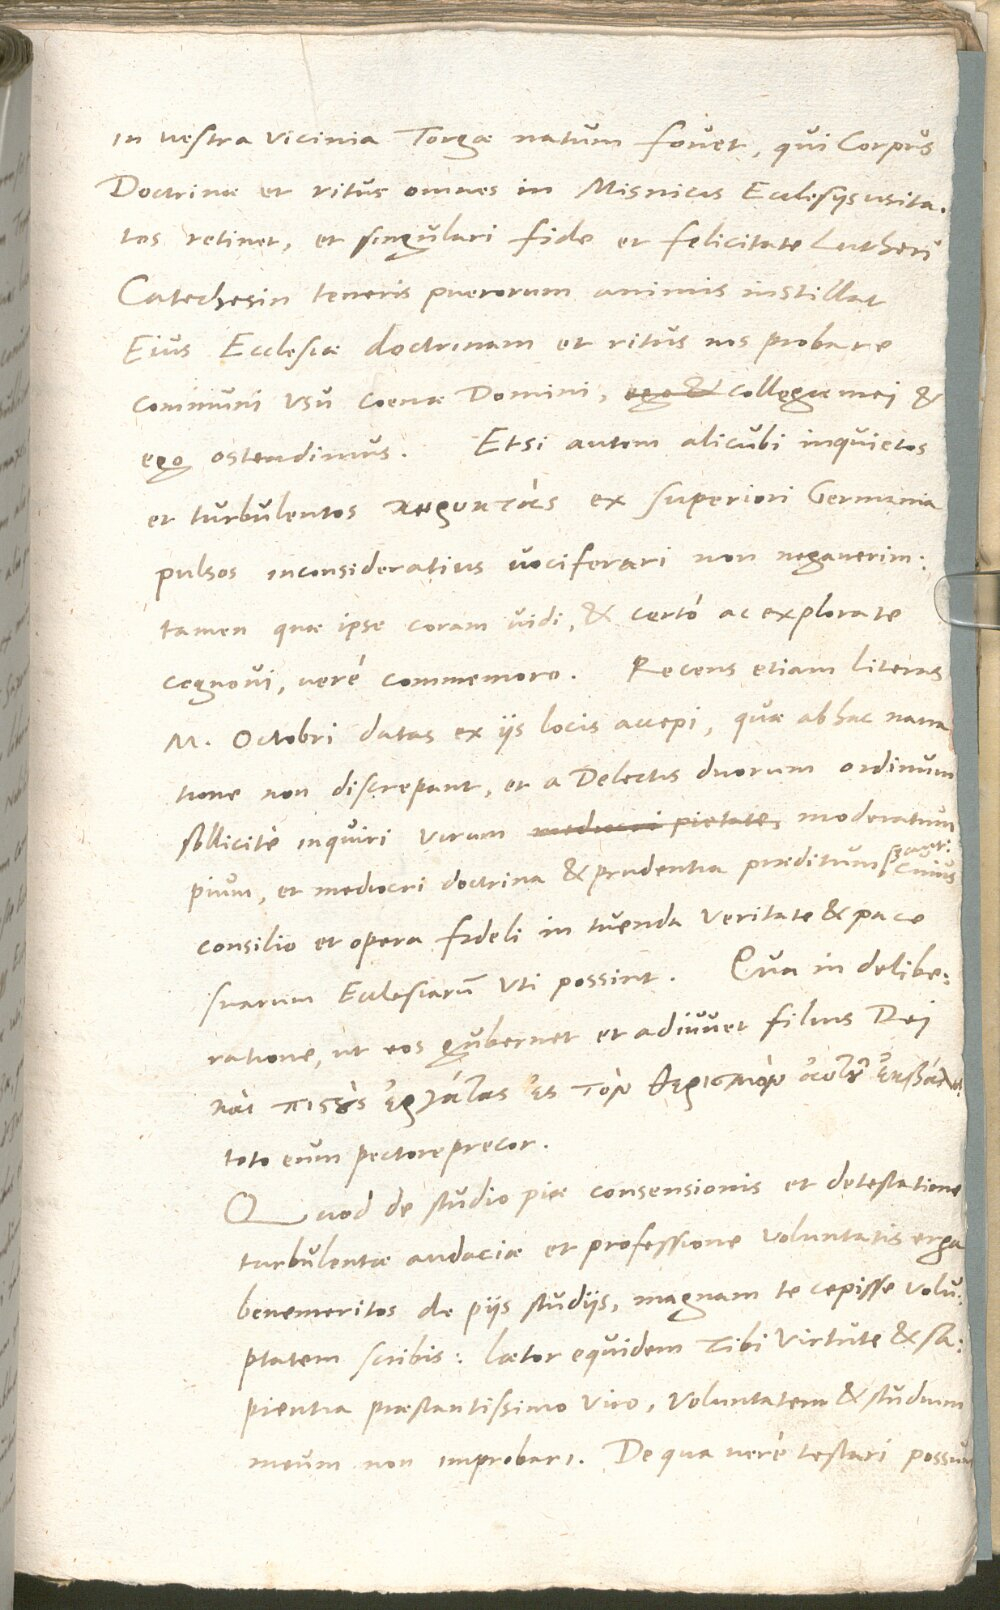 in vestra vicinia Torgæ natum fovet, qui Corpus
Doctrinæ et ritus omnes in Misnicis Ecclesijs usita-
tos retinet, et singulari fide et felicitate Lutheri
Catechesin teneris puerorum animis instillat
Eius Ecclesiæ doctrinam et ritus nos probare
communi usu coenæ Domini, ego & collegæ mei &
ego ostendimus. Etsi autem alicubi inquietos
et turbulentos ex superiori Germania
pulsos inconsideratius vociferari non negaverim:
tamen quæ ipse coram vidi, & certò ac explorate
cognovi, verè commemoro. Recens etiam literas
M. Octobri datas ex iis locis accepi, quæ ab hac narra
tione non discrepant, et a Delectis duorum ordinum
sollicitè inquiri virum mediocri pietate, moderatum
pium, et mediocri doctrina & prudentia præditum Cuius
consilio et opera fideli in tuenda veritate & pace
suarum Ecclesiarū uti possint. Qua in delibe:
ratione, ut eos gubernet et adiuvet filius Dei
καὶ πιστοὺς ἐργάτας εἰς τὸν θερισμὸν αὐτοῦ ἐκβάλῃ
toto eum pectore precor.
Quod de studio piæ consensionis et detestatione
turbulentæ audaciæ et professione voluntatis erga
benemeritos de piis studiis, magnam te cepisse volu:
ptatem scribis: lætor equidem Tibi virtute & sa:
pientia præstantissimo viro, voluntatem & studium
meum non improbari. De qua verè testari possum